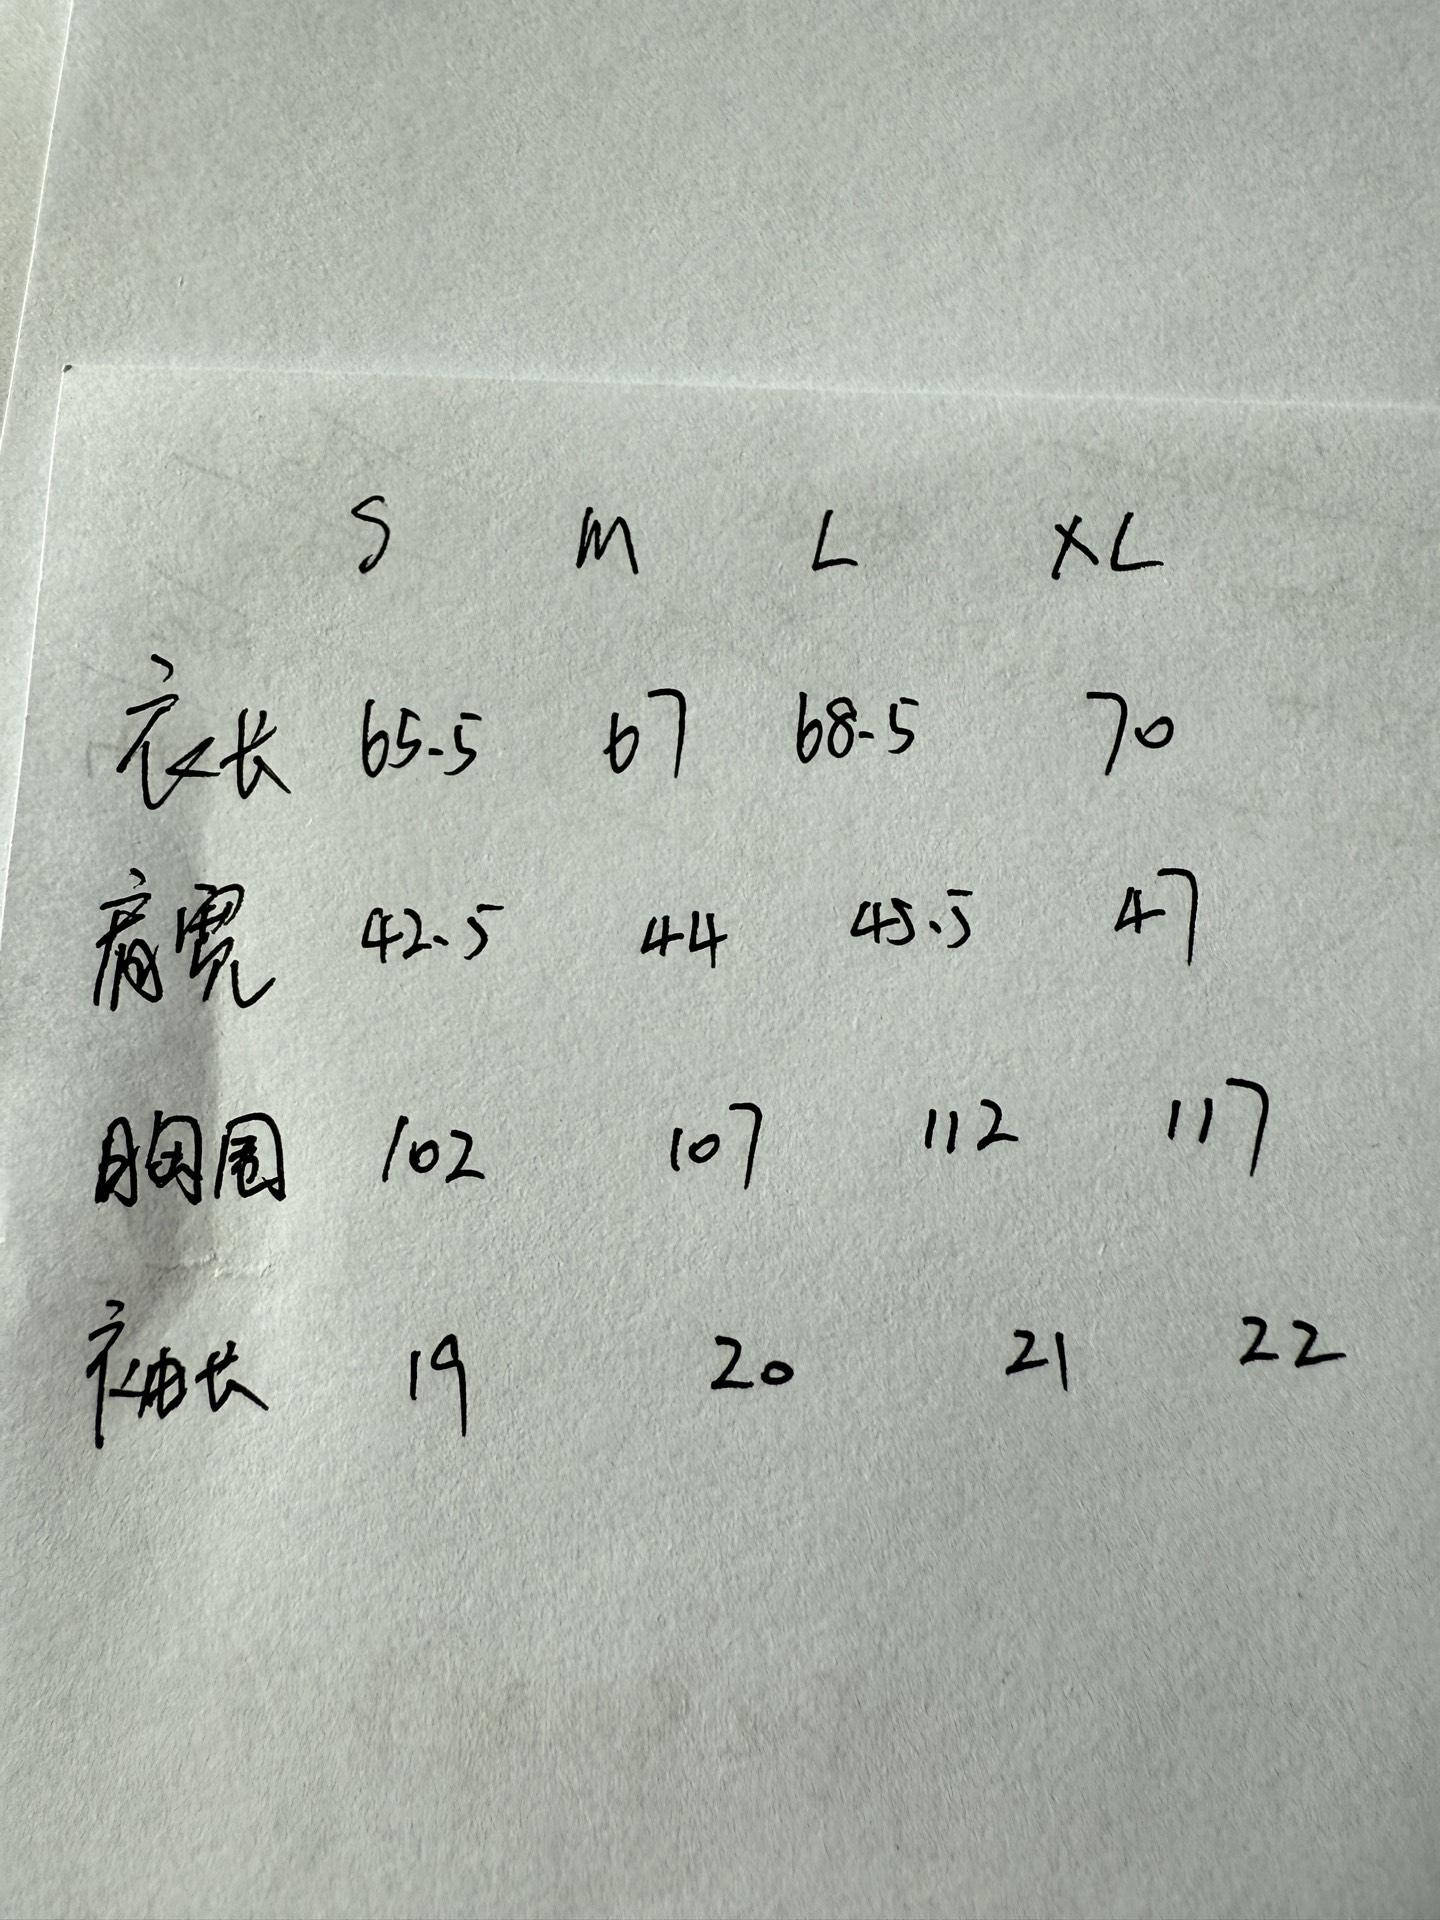 S M L XL
衣长 65.5 67 68.5 70
肩宽 42.5 44 45.5 47
胸围 102 107 112 117
袖长 19 20 21 22